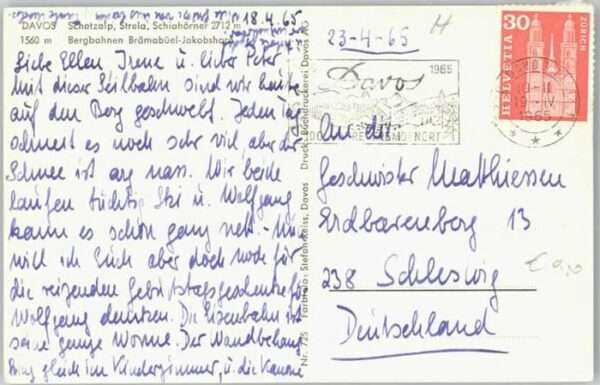 18.4.65
DAVOS Schatzalp, Strela, Schiahörner 2712 m
1560 m Bergbahnen Brämabüel-Jakobshorn
Liebe Ellen, Irene u. lieber Peter
mit dieser Seilbahn sind wir heute
auf den Berg geschwebt. Jeden Tag
schneit es noch sehr viel, aber der
Schnee ist arg nass. Wir beide
laufen tüchtig Ski u. Wolfgang
kann es schon ganz nett. Nun
will ich Euch aber doch noch für
die reizenden Geburtstagsgeschenke für
Wolfgang danken. Die Eisenbahn ist
seine ganze Wonne. Der Wandbehang
hing gleich im Kinderzimmer, u. die Kanone
Nr. 725 Farbfoto: Stefan Reiss, Davos Druck: Buchdruckerei Davos AG
23-4-65
H
Davos
1965
100
30
HELVETIA
ZÜRICH
1965
An die
Geschwister Matthiessen
Erdbeerenberg 13
238 Schleswig
Deutschland